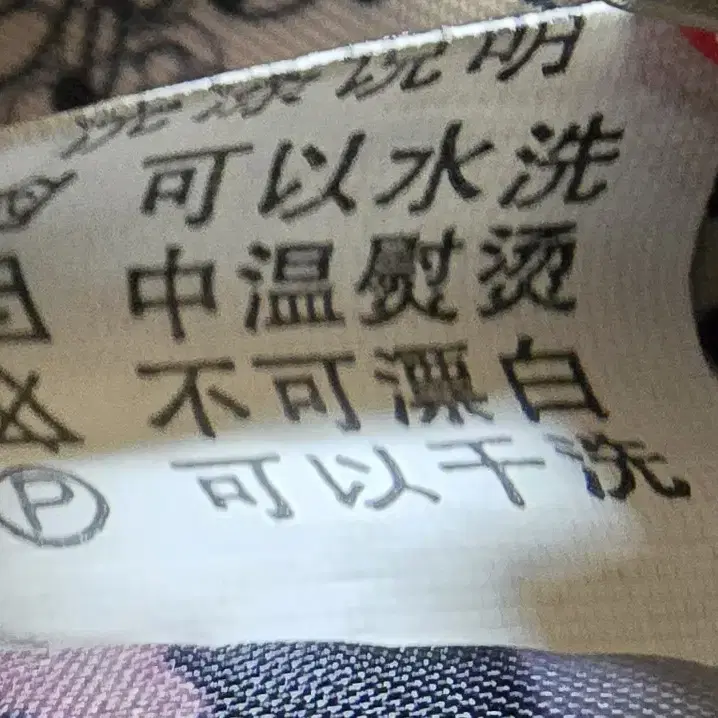 洗涤说明
可以水洗
中温熨烫
不可漂白
P 可以干洗